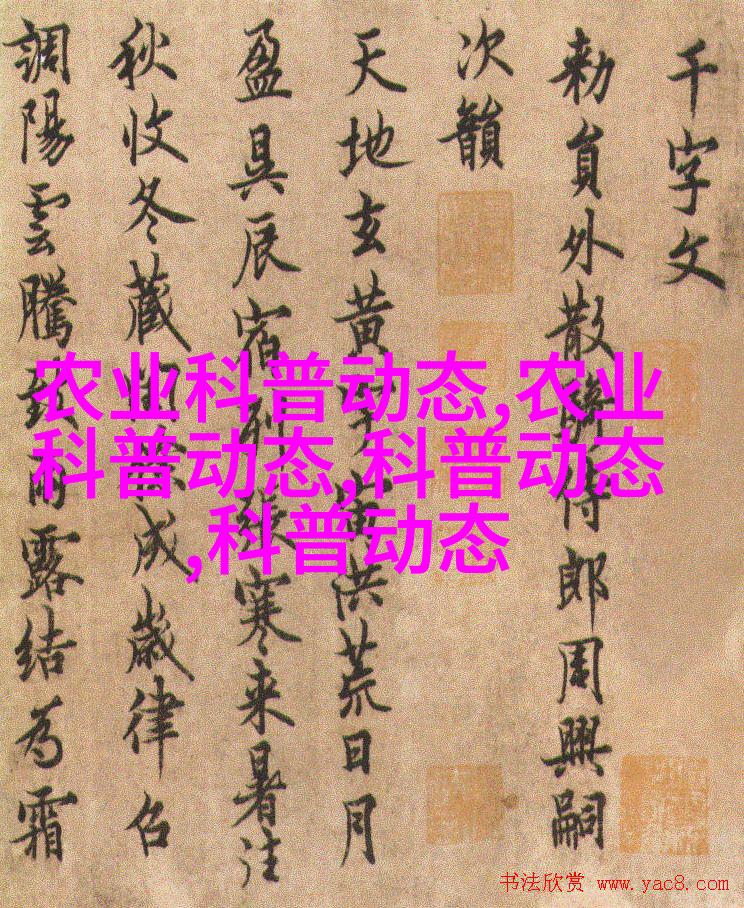 千字文
勅員外散騎侍郎周興嗣
次韻
天地玄黄宇宙洪荒日月
盈昃辰宿列張寒来暑往
秋收冬藏閏餘成歲律召
調陽雲騰致雨露結為霜
农业科普动态,农业
科普动态,科普动态
,科普动态
书法欣赏 www.yac8.com